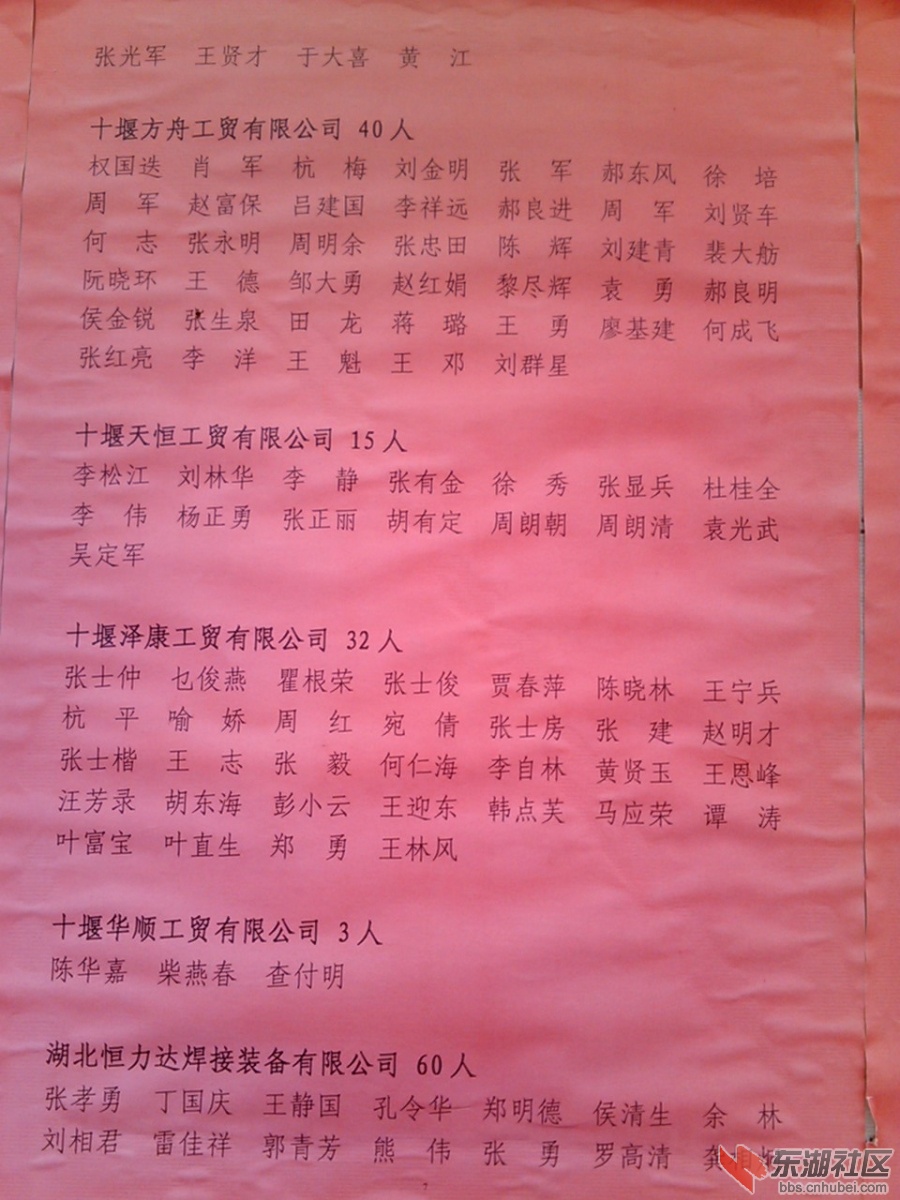 张光军 王贤才 于大喜 黄 江
十堰方舟工贸有限公司 40人
权国迭 肖 军 杭 梅 刘金明 张 军 郝东风 徐 培
周 军 赵富保 吕建国 李祥远 郝良进 周 军 刘贤车
何 志 张永明 周明余 张忠田 陈 辉 刘建青 裴大舫
阮晓环 王 德 邹大勇 赵红娟 黎尽辉 袁 勇 郝良明
侯金锐 张生泉 田 龙 蒋 璐 王 勇 廖基建 何成飞
张红亮 李 洋 王 魁 王 邓 刘群星
十堰天恒工贸有限公司 15人
李松江 刘林华 李 静 张有金 徐 秀 张显兵 杜桂全
李 伟 杨正勇 张正丽 胡有定 周朗朝 周朗清 袁光武
吴定军
十堰泽康工贸有限公司 32人
张士仲 乜俊燕 瞿根荣 张士俊 贾春萍 陈晓林 王宁兵
杭 平 喻 娇 周 红 宛 倩 张士房 张 建 赵明才
张士楷 王 志 张 毅 何仁海 李自林 黄贤玉 王恩峰
汪芳录 胡东海 彭小云 王迎东 韩点芙 马应荣 谭 涛
叶富宝 叶直生 郑 勇 王林风
十堰华顺工贸有限公司 3人
陈华嘉 柴燕春 查付明
湖北恒力达焊接装备有限公司 60人
张孝勇 丁国庆 王静国 孔令华 郑明德 侯清生 余 林
刘相君 雷佳祥 郭青芳 熊 伟 张 勇 罗高清 龚
东湖社区
bbs.cnhubei.com